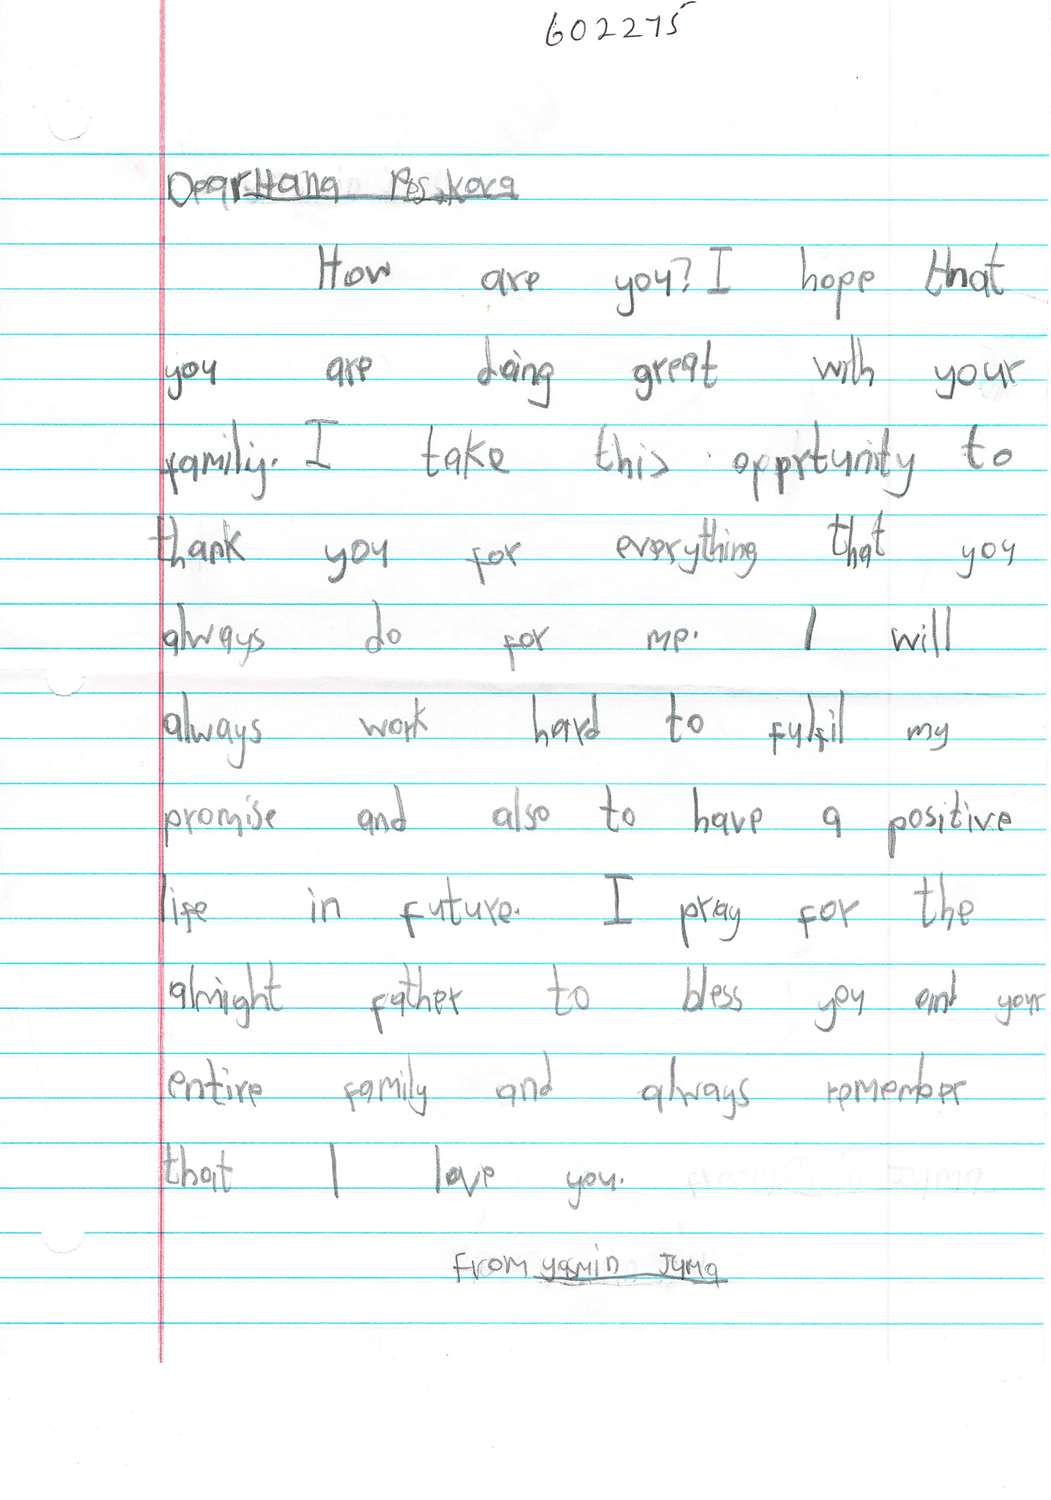 602275
Dear Hana Peskova
How are you? I hope that
you are doing great with your
family. I take this opprtunity to
thank you for everything that you
always do for me. I will
always work hard to fulfil my
promise and also to have a positive
life in future. I pray for the
almight father to bless you and your
entire family and always remember
that I love you.
From yasmin Juma